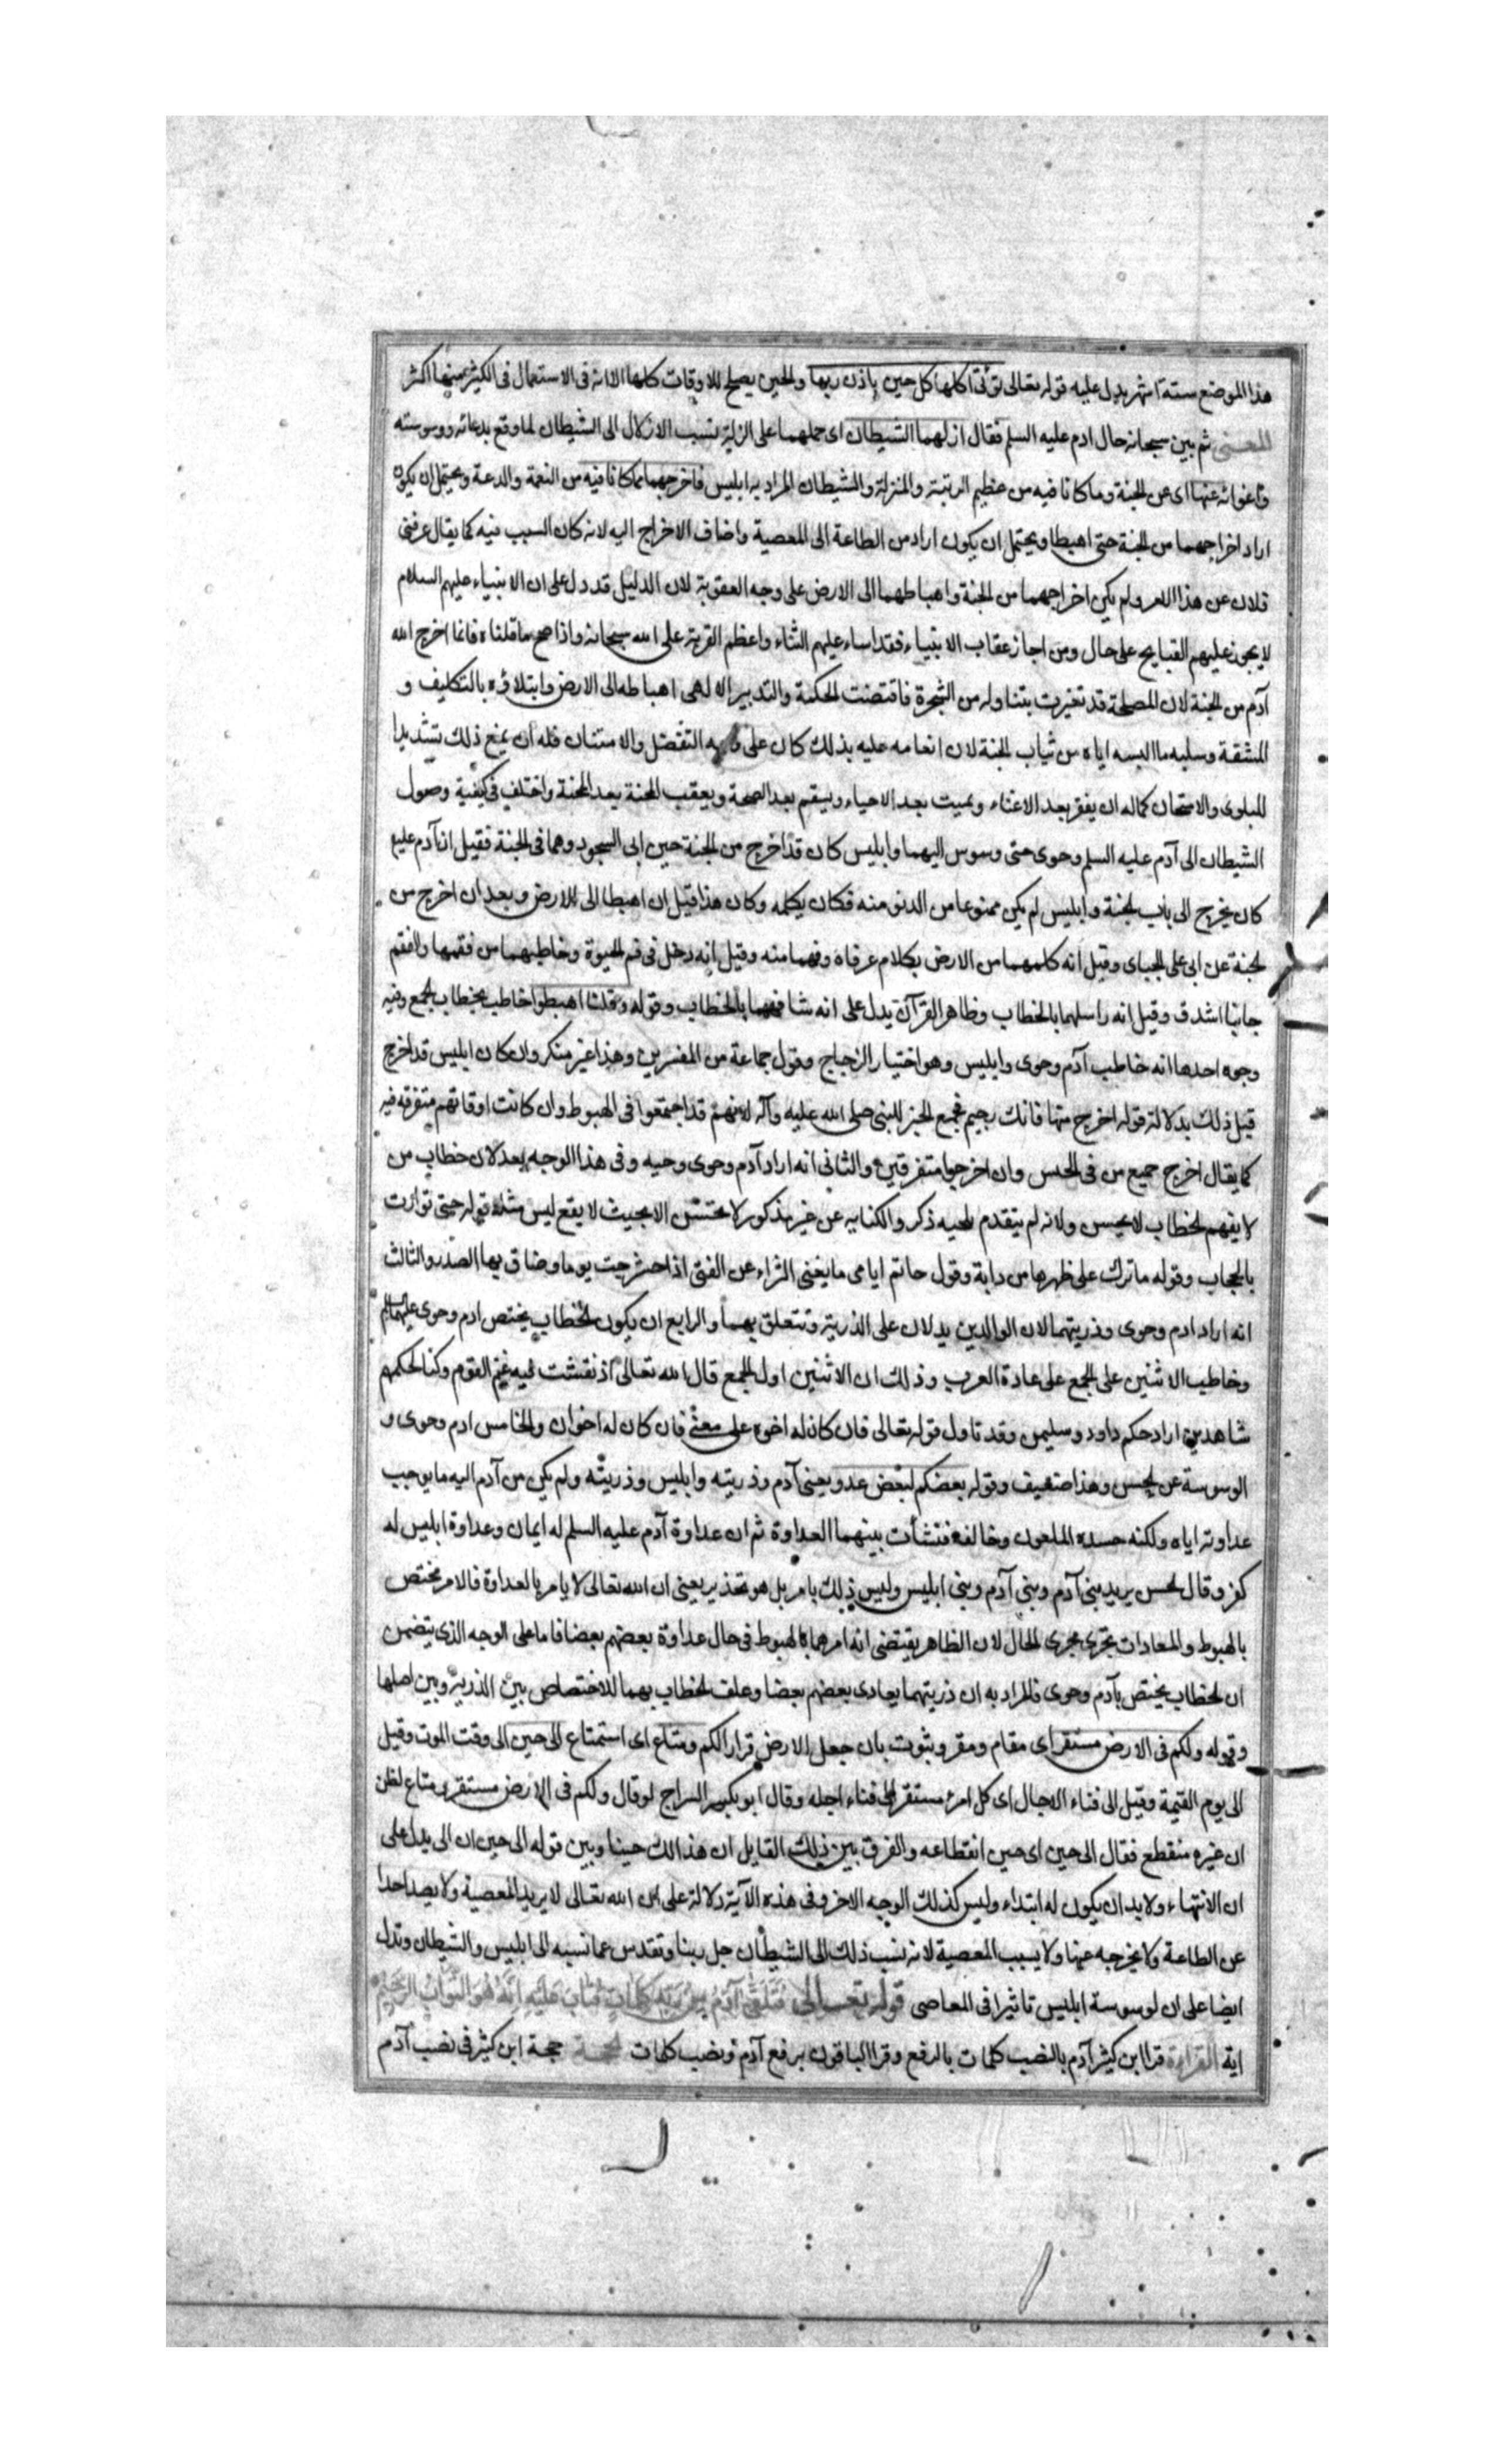 هذا الموضع ستة اشهر يدل عليه قوله تعالى تؤتى اكلها كل حين باذن ربها والحين يصلح للاوقات كلها الا انه فى الاستعمال فى الكثير منها اكثر
المعنى ثم بين سبحانه حال ادم عليه السلم فقال ازلهما الشيطان اى حملهما على الزلة نسب الازلال الى الشيطان لما وقع بدعائه ووسوسته
واغوائه عنها اى عن الجنة وما كانا فيه من عظيم الرتبة والمنزلة والشيطان المراد به ابليس فاخرجهما مما كانا فيه من النعمة والدعة ويحتمل ان يكون
اراد اخراجهما من الجنة حتى اهبطا ويحتمل ان يكون اراد من الطاعة الى المعصية واضاف الاخراج اليه لانه كان السبب فيه كما يقال صرفنى
فلان عن هذا الامر ولم يكن اخراجهما من الجنة واهباطهما الى الارض على وجه العقوبة لان الدليل قد دل على ان الانبياء عليهم السلام
لا يجوز عليهم القبايح على حال ومن اجاز عقاب الانبياء فقد اساء عليهم الثناء واعظم الفرية على الله سبحانه واذا صح ما قلناه فانما اخرج الله
آدم من الجنة لان المصلحة قد تغيرت بتناوله من الشجرة فاقتضت الحكمة والتدبير الالهى اهباطه الى الارض وابتلاؤه بالتكليف و
المشقة وسلبه ما البسه اياه من ثياب الجنة لان انعامه عليه بذلك كان على وجه التفضل والامتنان فله ان يمنع ذلك تشديدا
للبلوى والامتحان كما له ان يفقر بعد الاغناء ويميت بعد الاحياء ويسقم بعد الصحة ويعقب المحنة بعد المحنة واختلف فى كيفية وصول
الشيطان الى آدم عليه السلم وحوى حتى وسوس اليهما وابليس كان قد اخرج من الجنة حين ابى السجود وهما فى الجنة فقيل ان آدم عليه
كان يخرج الى باب الجنة وابليس لم يكن ممنوعا من الدنو منه فكان يكلمه وكان هذا قبل ان اهبطا الى الارض وبعد ان اخرج من
الجنة عن ابى على الجباى وقيل انه كلمهما من الارض بكلام عرفاه وفهما منه وقيل انه دخل فى فم الحيوة وخاطبهما من فقمها والفقم
جانبا الشدق وقيل انه راسلهما بالخطاب وظاهر القرآن يدل على انه شافههما بالخطاب وقوله وقلنا اهبطوا خاطب بخطاب الجمع وفيه
وجوه احدها انه خاطب آدم وحوى وابليس وهو اختيار الزجاج وقول جماعة من المفسرين وهذا غير منكر وان كان ابليس قد اخرج
قبل ذلك بدلالة قوله اخرج منها فانك رجيم فجمع الخبر للنبى صلى الله عليه وآله لانهم قد اجتمعوا فى الهبوط وان كانت اوقاتهم متفرقة فيه
كما يقال اخرج جميع من فى الحبس وان اخرجوا متفرقين والثانى انه اراد آدم وحوى وحيه وفى هذا الوجه بعد لان خطاب من
لا يفهم الخطاب لا يحسن ولانه لم يتقدم للحيه ذكر والكنايه عن غير مذكور لا تحسن الا بحيث لا يقع لبس مثله قوله حتى توارت
بالحجاب وقوله ما ترك على ظهرها من دابة وقول حاتم اياوى ما يغنى الثراء عن الفتى اذا حشرجت يوما وضاق بها الصدر والثالث
انه اراد ادم وحوى وذريتهما لان الوالدين يدلان على الذرية وتتعلق بهما والرابع ان يكون الخطاب يختص ادم وحوى عليهما السلم
وخاطب الاثنين على الجمع على عادة العرب وذلك ان الاثنين اول الجمع قال الله تعالى اذ نفشت فيه غنم القوم وكنا لحكمهم
شاهدين اراد حكم داود وسليمن وقد تاول قوله تعالى فان كان له اخوه على معنى فان كان له اخوان والخامس ادم وحوى و
الوسوسة عن الحسن وهذا ضعيف وقوله بعضكم لبعض عدو يعنى آدم وذريته وابليس وذريته ولم يكن من آدم اليه ما يوجب
عداوته اياه ولكنه حسده الملعون وخالفه فنشأت بينهما العداوة ثم ان عداوة آدم عليه السلم له ايمان وعداوة ابليس له
كفر وقال الحسن يريد بنى آدم وبنى آدم وبنى ابليس وليس ذلك بامر بل هو تحذير يعنى ان الله تعالى لا يامر بالعداوة فالامر مختص
بالهبوط والمعادات تجرى مجرى الحال لان الظاهر يقتضى انه امرهما بالهبوط فى حال عداوة بعضهم بعضا فاما على الوجه الذى يتضمن
ان الخطاب يختص بآدم وحوى فالمراد به ان ذريتهما يعادى بعضهم بعضا وعلق الخطاب بهما للاختصاص بين الذرية وبين اصلها
وقوله ولكم فى الارض مستقر اى مقام ومقر وثبوت بان جعل الارض قرارا لكم ومتاع اى استمتاع الى حين الى وقت الموت وقيل
الى يوم القيمة وقيل الى فناء الاجال اى كل امرء مستقر الى فناء اجله وقال ابو بكر السراج لو قال ولكم فى الارض مستقر ومتاع لظن
ان غيره منقطع فقال الى حين اى حين انقطاعه والفرق بين ذلك القايل ان هذا لك حينا وبين قوله الى حين ان الى يدل على
ان الانتهاء ولا بد ان يكون له ابتداء وليس كذلك الوجه الاخر وفى هذه الآية دلالة على ان الله تعالى لا يريد المعصية ولا يصد احدا
عن الطاعة ولا يخرجه عنها ولا يسبب المعصية لانه نسب ذلك الى الشيطان جل ربنا وتقدس عما نسبه الى ابليس والشيطان وتدل
ايضا على ان لوسوسة ابليس تاثيرا فى المعاصى قوله تعالى فَتَلَقَّى آدَمُ مِنْ رَبِّهِ كَلِمَاتٍ فَتَابَ عَلَيْهِ اِنَّهُ هُوَ التَّوَّابُ الرَّحِيمُ
اية القراءة قرا ابن كثير آدم بالنصب كلمات بالرفع وقرا الباقون برفع آدم ونصب كلمات الحجة حجة ابن كثير فى نصب آدم